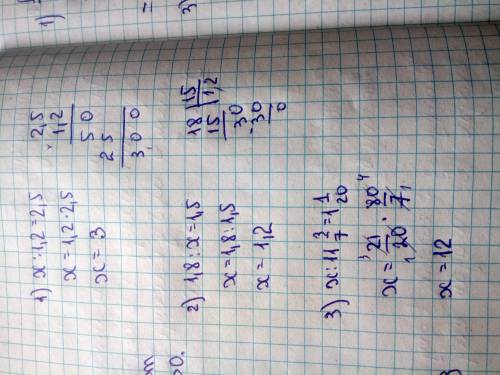 1) x : 1,2 = 2,5
x = 1,2 · 2,5
x = 3
2,5
1,2
5 0
2 5
3,0 0
2) 1,8 : x = 1,5
x = 1,8 : 1,5
x = 1,2
18 | 15
15 | 1,2
30
-30
0
3) x : 11 3/7 = 1 1/20
x = 21/20 · 80/7
3 1 4 1
x = 12
1)
=
3)
50.